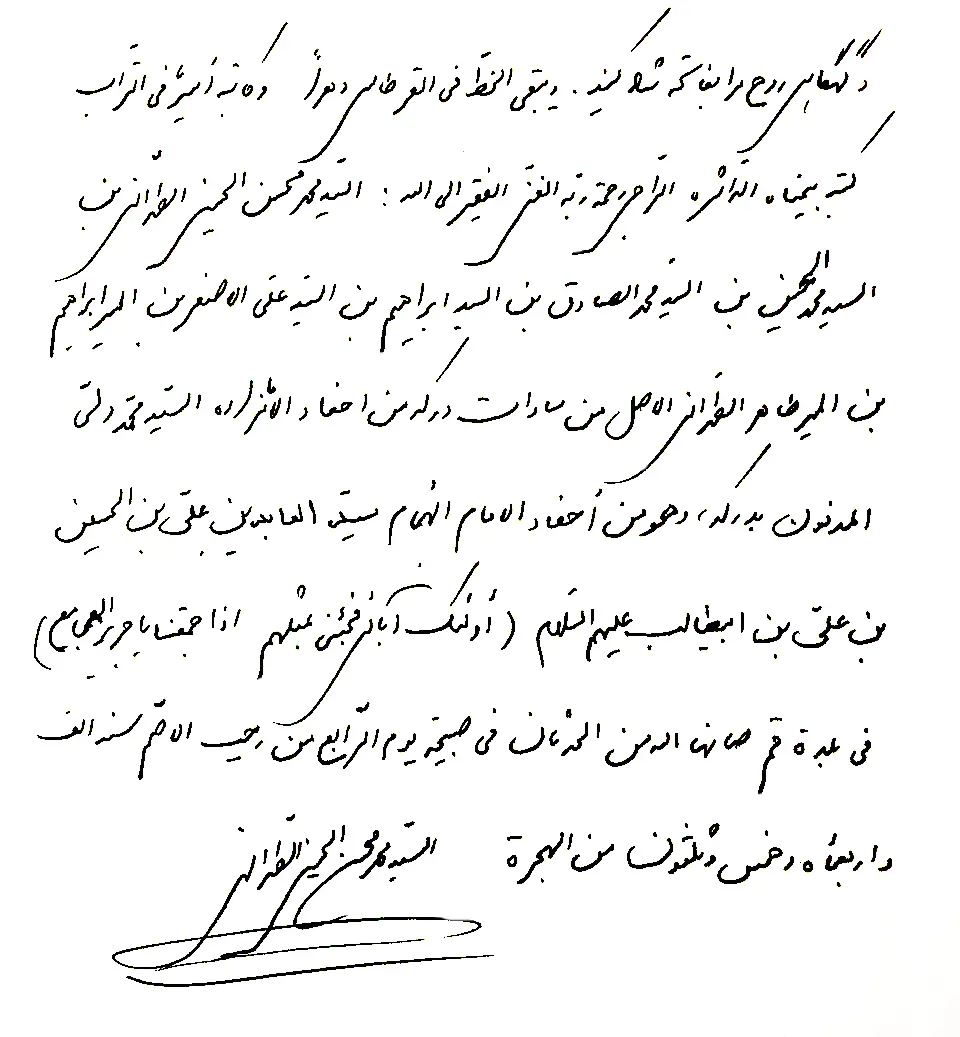 و گهگاهی روح مرا بفاتحه شاد کنید. ویبقی الخطّ فی القرطاس دهراً وکاتبه أمیرٌ فی التراب
کتبه بیمناه الداثره الراجی رحمة ربّه الغنیّ الفقیر الی الله : السیّد محمد محسن الحسینی الطهرانی بن
السید محمد الحسین بن السیّد محمد الصادق بن السید ابراهیم بن السیّد علی الاصغر بن المیر ابراهیم
بن المیر طاهر الطهرانی الاصل من سادات درکه من احفاد السیّد محمّد ولیّ
المدفون بدرکه، وهو من أحفاد الامام الهُمام سیّد العابدین علیّ بن الحسین
بن علیّ بن ابیطالب علیهم السّلام (أولئک آبائی فجئنی بمثلهم اذا جمعتنا یا جریر المجامع)
فی بلدة قم صانها الله من الحدثان فی صبیحة یوم الرّابع من رجب الاصمّ سنه الف
و اربعمأه وخمس وثلثون من الهجرة السیّد محمد محسن الحسینی الطهرانی